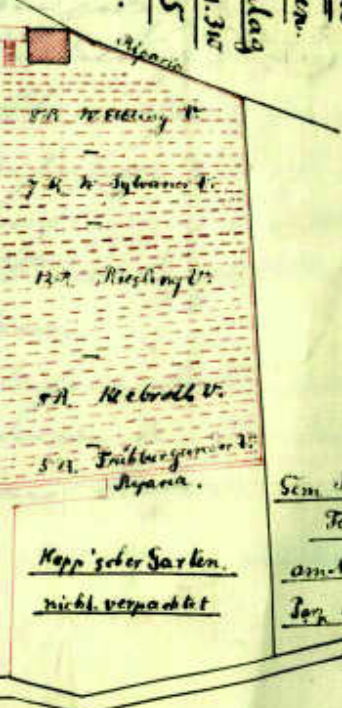 Riparia
8 R. W. Elbling V.
7 R. W. Sylvaner V.
12 R. Riesling V.
R. Klebroth V.
5 R. Frühburgunder V.
Ryparia.
Hepp'scher Garten.
nicht verpachtet
lag
5
Gem.
am
Parz.